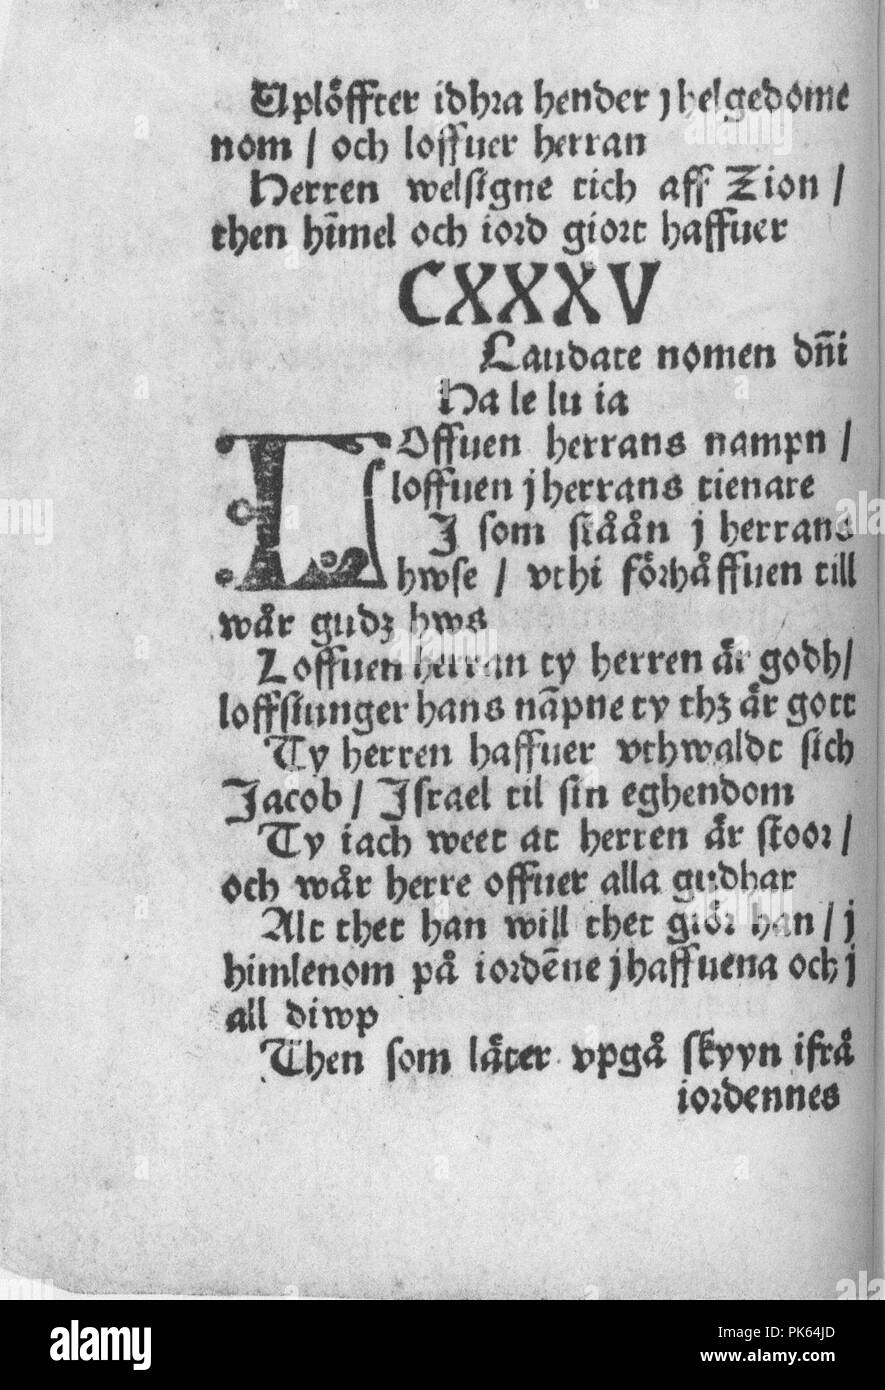 Uplöffter idhra hender j helgedome
nom / och loffuer herran
Herren welsigne tich aff Zion /
then him̄el och iord giort haffuer
CXXXV
Laudate nomen dn̄i
Ha le lu ia
LOffuen herrans nampn /
loffuen j herrans tienare
J som ståån j herrans
hwse / vthi förhåffuen till
wår gudz hws
Loffuen herran ty herren är godh /
loffsiunger hans nāpne ty thz är gott
Ty herren haffuer vthwaldt sich
Jacob / Israel til sin eghendom
Ty iach weet at herren är stoor /
och wår herre offuer alla gudhar
Alt thet han will thet giör han / j
himlenom på iordēne j haffuena och j
all diwp
Then som låter vpgå skyyn ifrå
iordennes
alamy
Image ID: PK64JD
www.alamy.com